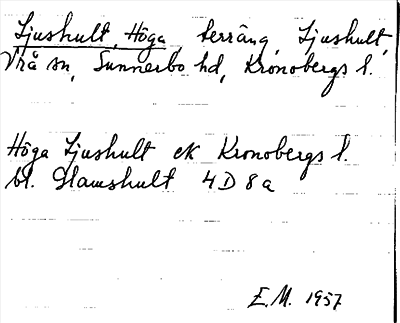 Ljushult, Höga terräng, Ljushult,
Vrå sn, Sunnerbo hd, Kronobergs l.
Höga Ljushult ek Kronobergs l.
bl. Hamshult 4 D 8 a
E.M. 1957